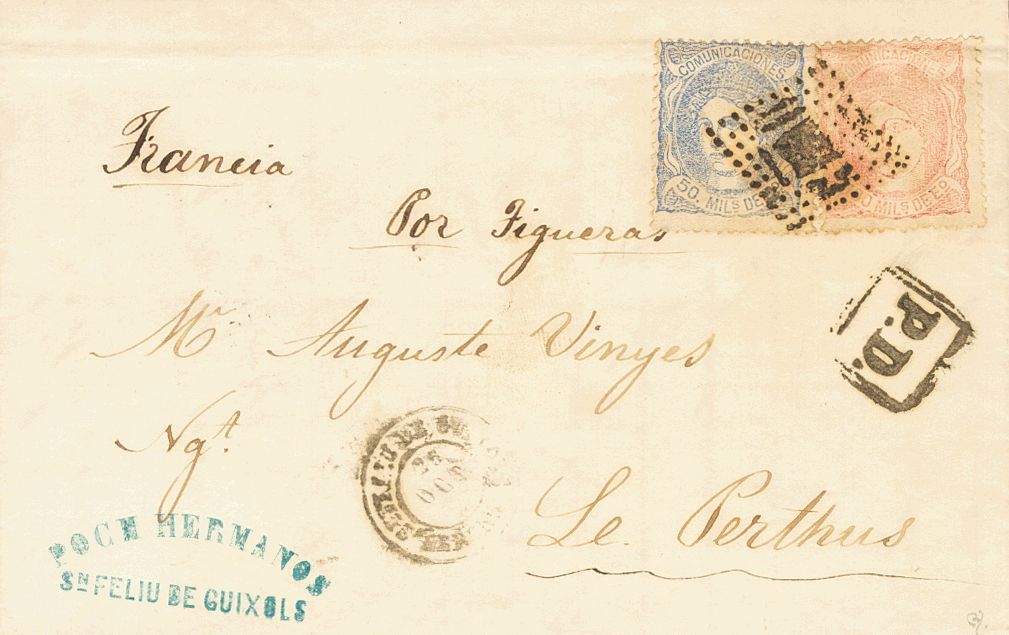 COMUNICACIONES
50. MILS DE Eº
MILS DE Eº
Francia
Por Figueras
P.D.
Mr Auguste Vinyes
Ngt.
Le Perthus
POCH HERMANOS
SN FELIU DE GUIXOLS